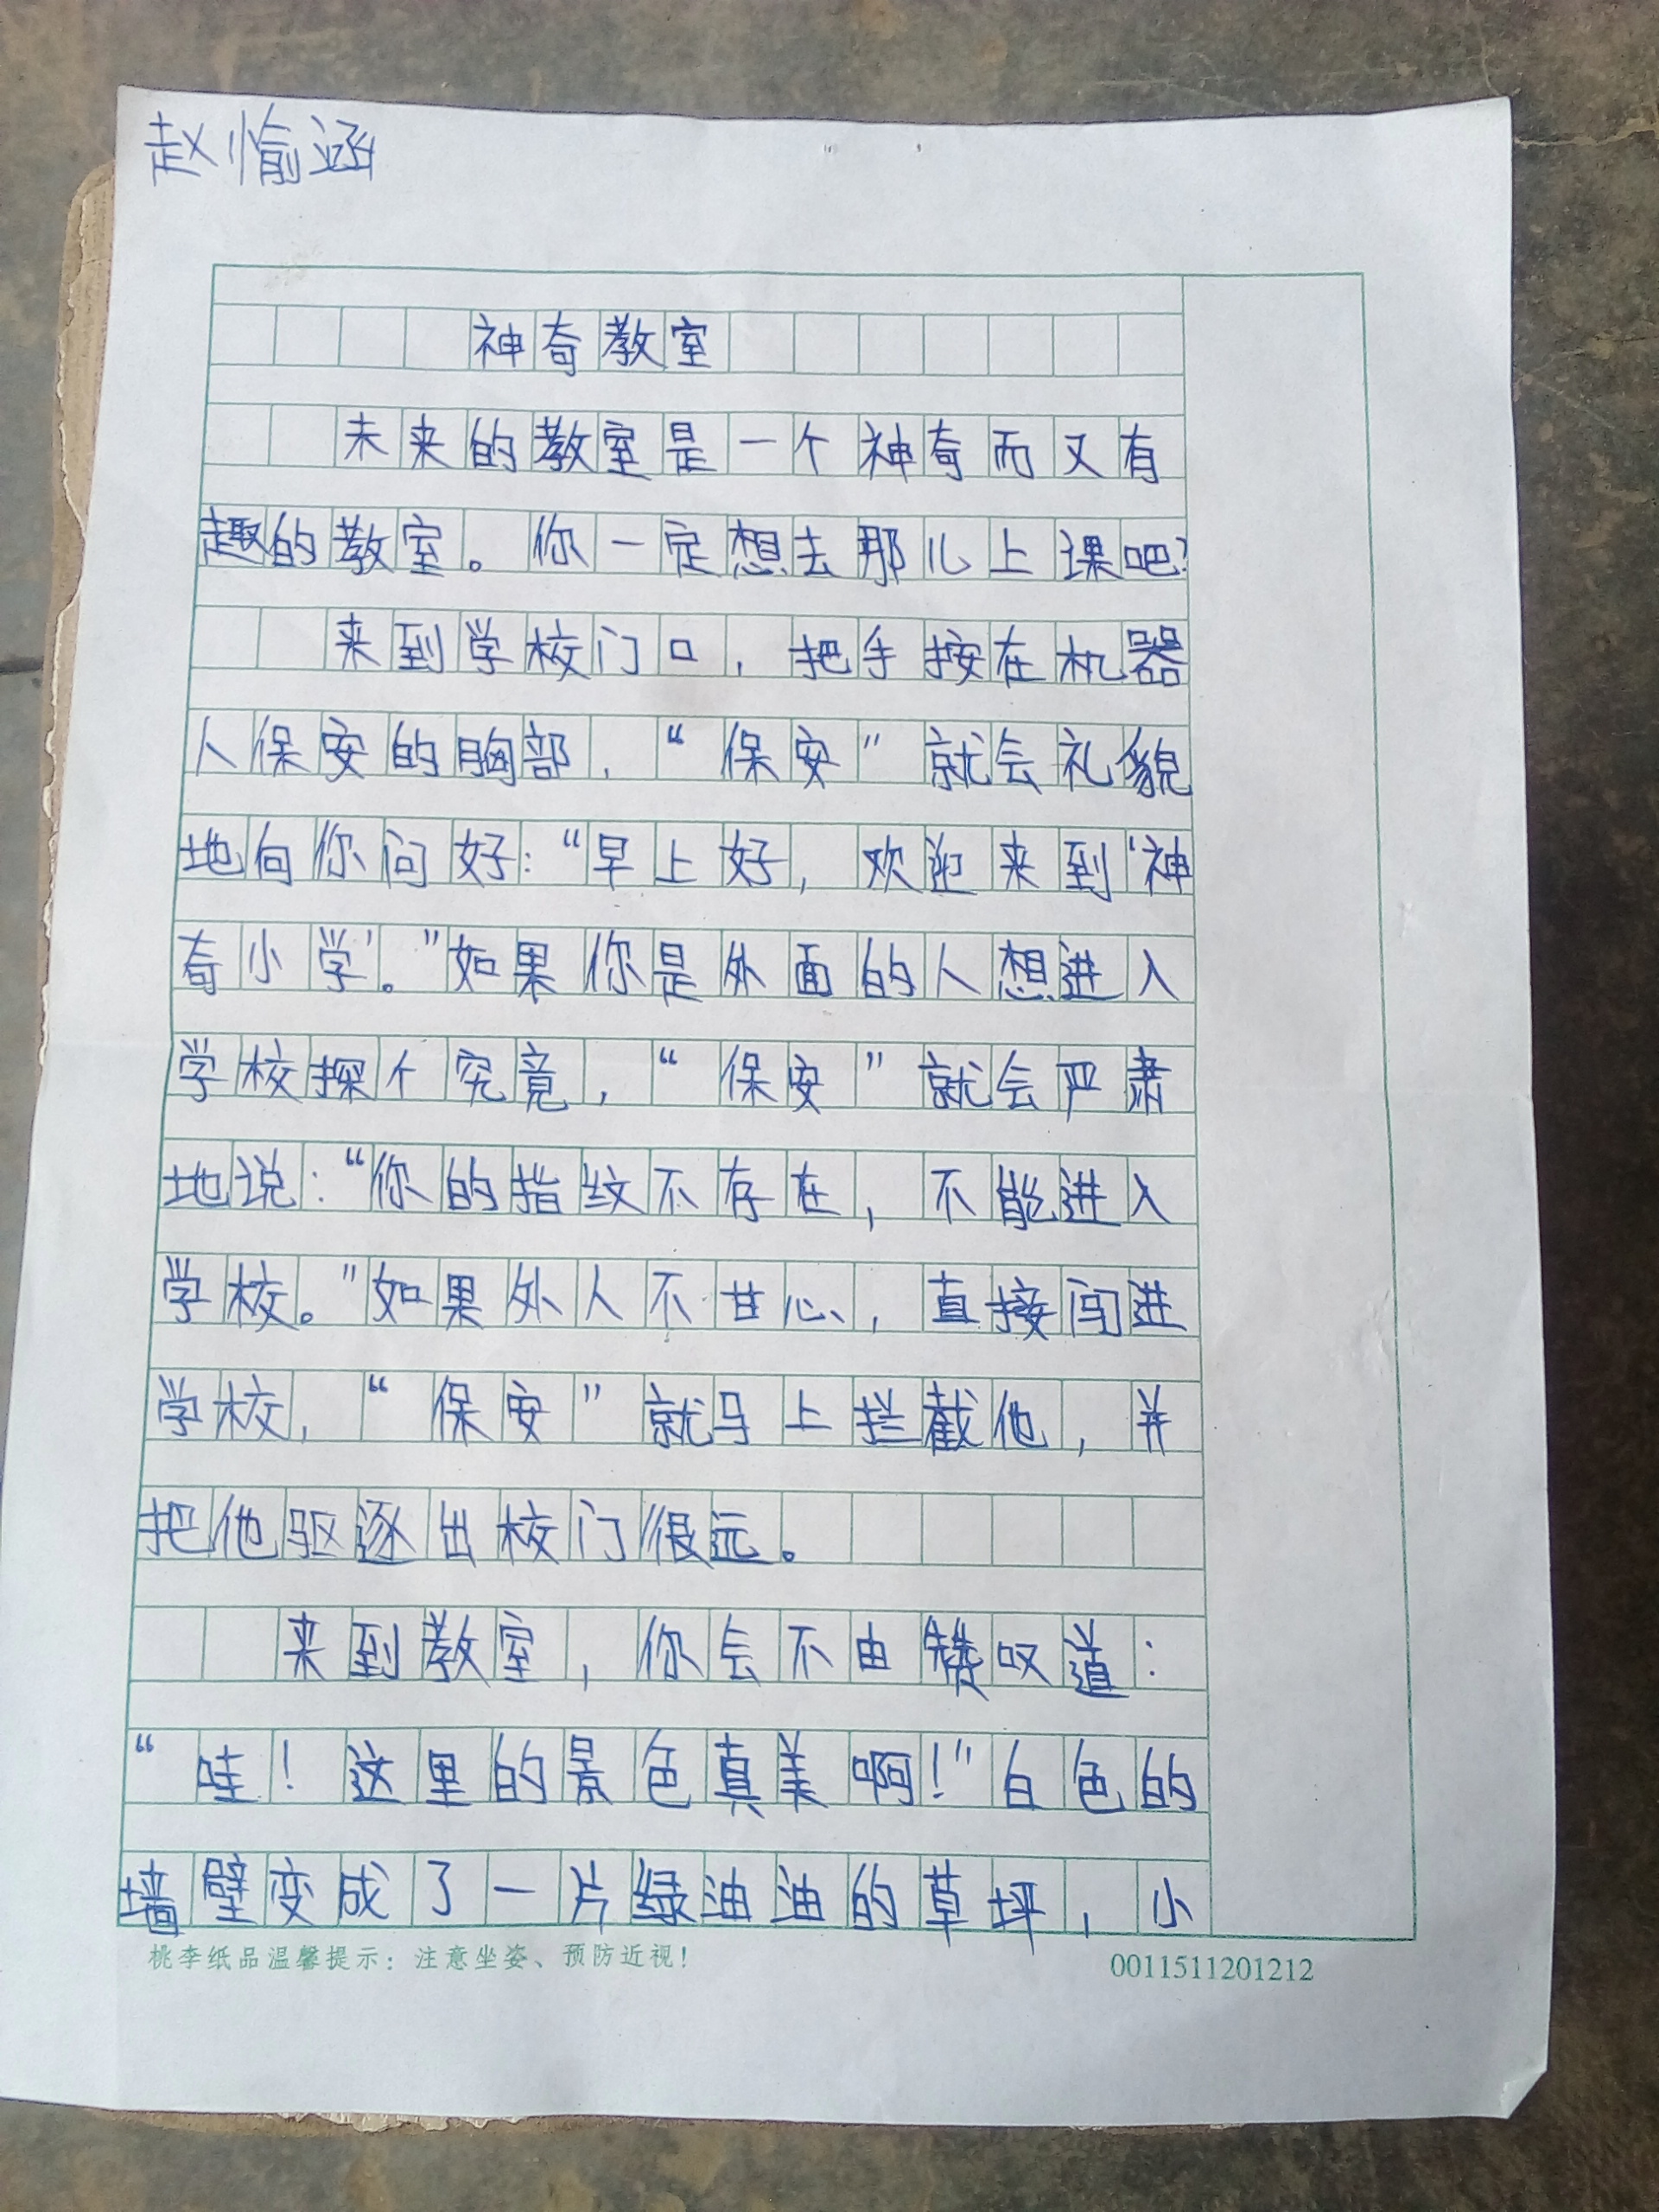 赵愉涵
神奇教室
未来的教室是一个神奇而又有
趣的教室。你一定想去那儿上课吧?
来到学校门口，把手按在机器
人保安的胸部，“保安”就会礼貌
地向你问好：“早上好，欢迎来到‘神
奇小学’。”如果你是外面的人想进入
学校探个究竟，“保安”就会严肃
地说：“你的指纹不存在，不能进入
学校。”如果外人不甘心，直接闯进
学校，“保安”就马上拦截他，并
把他驱逐出校门很远。
来到教室，你会不由赞叹道：
“哇！这里的景色真美啊！”白色的
墙壁变成了一片绿油油的草坪，小
桃李纸品温馨提示：注意坐姿、预防近视！
0011511201212